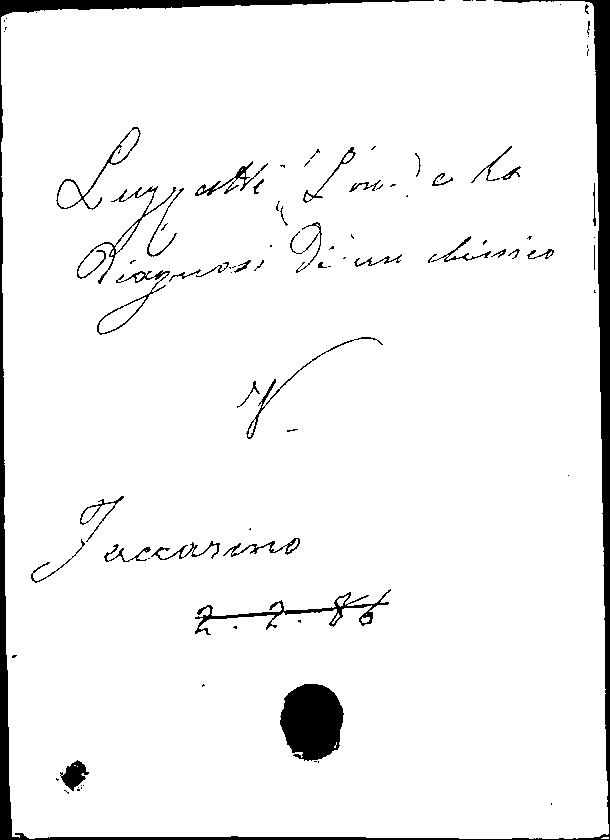 Luzzatti (L'on.) e la
Diagnosi di un chimico
V
Jaccarino
2.2.86